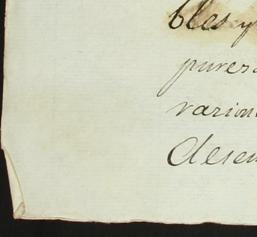 bles y
purez
varion
desem